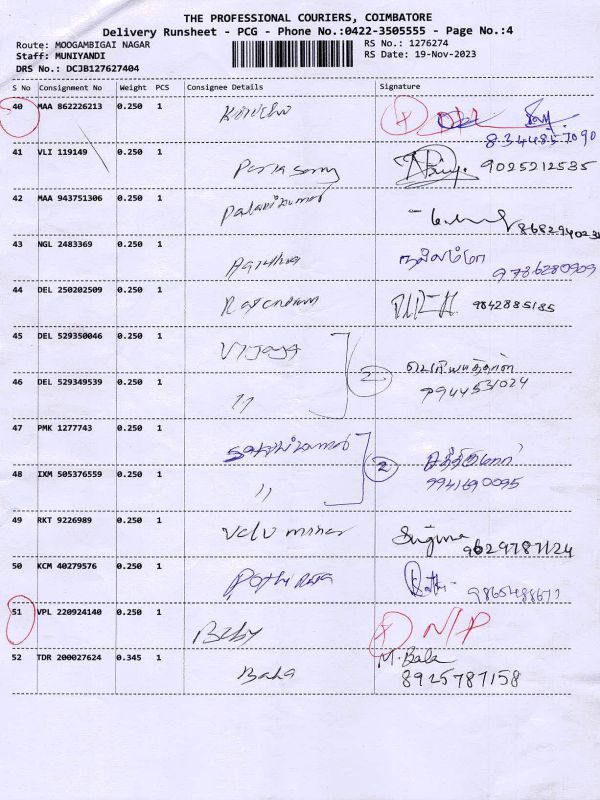 THE PROFESSIONAL COURIERS, COIMBATORE
Delivery Runsheet - PCG - Phone No.:0422-3505555 - Page No.:4
Route: MOOGAMBIGAI NAGAR
RS No.: 1276274
Staff: MUNIYANDI
RS Date: 19-Nov-2023
DRS No.: DCJB127627404
S No Consignment No Weight PCS Consignee Details Signature
40 MAA 862226213 0.250 1
41 VLI 119149 0.250 1 Periasamy 9025212535
42 MAA 943751306 0.250 1 8682940234
43 NGL 2483369 0.250 1 9786280909
44 DEL 250202509 0.250 1 9842885185
45 DEL 529350046 0.250 1 Vijaya
2
46 DEL 529349539 0.250 1 " 7944531024
47 PMK 1277743 0.250 1
2
48 IXM 505376559 0.250 1 " 9941690095
49 RKT 9226989 0.250 1 Velu Suguna 9629787124
50 KCM 40279576 0.250 1
51 VPL 220924140 0.250 1 Beby N/P
52 TDR 200027624 0.345 1 Bala M. Bala
8925787158